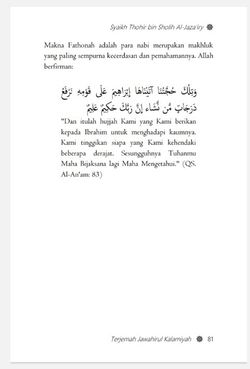 Syaikh Thohir bin Sholih Al-Jaza'iry
Makna Fathonah adalah para nabi merupakan makhluk
yang paling sempurna kecerdasan dan pemahamannya. Allah
berfirman:
وَتِلْكَ حُجَّتُنَا آتَيْنَاهَا إِبْرَاهِيمَ عَلَى قَوْمِهِ نَرْفَعُ
دَرَجَاتٍ مَّن نَّشَاء إِنَّ رَبَّكَ حَكِيمٌ عَلِيمٌ
"Dan itulah hujjah Kami yang Kami berikan
kepada Ibrahim untuk menghadapi kaumnya.
Kami tinggikan siapa yang Kami kehendaki
beberapa derajat. Sesungguhnya Tuhanmu
Maha Bijaksana lagi Maha Mengetahui." (QS.
Al-An'am: 83)
Terjemah Jawahirul Kalamiyah 81